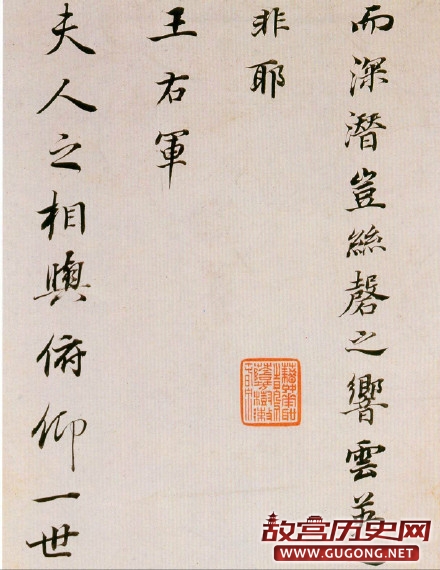 而深潛豈絲磬之響雲英
非耶
王右軍
夫人之相與俯仰一世
故宫历史网
WWW.GUGONG.NET